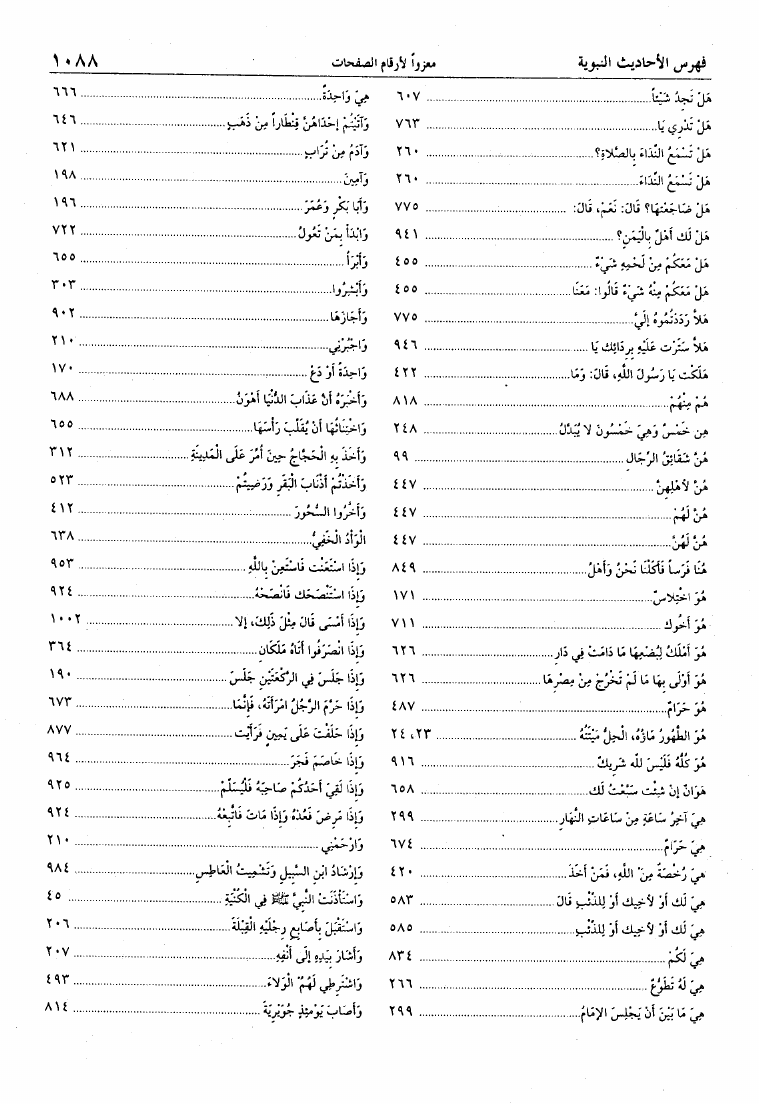 فهرس الأحاديث النبوية معزواً لأرقام الصفحات ١٠٨٨
هَلْ نَجِدُ شَيْئاً ٦٠٧
هَلْ تَدْرِي يَا ٧٦٣
هَلْ تَسْمَعُ النِّدَاءَ بِالصَّلاةِ؟ ٢٦٠
هَلْ تَسْمَعُ النِّدَاءَ ٢٦٠
هَلْ ضَاجَعْتَهَا؟ قَالَ: نَعَمْ، قَالَ: ٧٧٥
هَلْ لَك أَهْلٌ بِالْيَمَنِ؟ ٩٤١
هَلْ مَعَكُمْ مِنْ لَحْمِهِ شَيْءٌ ٤٥٥
هَلْ مَعَكُمْ مِنْهُ شَيْءٌ قَالُوا: مَعَنَا ٤٥٥
هَلاَّ رَدَدْتُمُوهُ إِلَيَّ ٧٧٥
هَلاَّ سَتَرْت عَلَيْهِ بِرِدَائِك يَا ٩٤٦
هَلَكْت يَا رَسُولَ اللَّهِ، قَالَ: وَمَا ٤٢٢
هُمْ مِنْهُمْ ٨١٨
هِن خَمْسٌ وَهِيَ خَمْسُونَ لا يُبَدَّلُ ٢٤٨
هُنَّ شَقَائِقُ الرِّجَالِ ٩٩
هُنَّ لأَهْلِهِنَّ ٤٤٧
هُنَّ لَهُمْ ٤٤٧
هُنَّ لَهُنَّ ٤٤٧
هُنَا فَرَساً فَأَكَلْنَا نَحْنُ وَأَهْلُ ٨٤٩
هُوَ اخْتِلاسٌ ١٧١
هُوَ أَخُوك ٧١١
هُوَ أَمْلَكُ لِبُضْعِهَا مَا دَامَتْ فِي دَارِ ٦٢٦
هُوَ أَوْلَى بِهَا مَا لَمْ تَخْرُجْ مِنْ مِصْرِهَا ٦٢٦
هُوَ حَرَامٌ ٤٨٧
هُوَ الطَّهُورُ مَاؤُهُ، الْحِلُّ مَيْتَتُهُ ٢٣، ٢٤
هُوَ كُلُّهُ فَلَيْسَ للَّه شَرِيكٌ ٩١٦
هَوَانٌ إنْ شِئْت سَبَّعْتُ لَك ٦٥٨
هِيَ آخِرُ سَاعَةٍ مِنْ سَاعَاتِ النَّهَارِ ٢٩٩
هِيَ حَرَامٌ ٦٧٤
هِيَ رُخْصَةٌ مِنْ اللَّهِ، فَمَنْ أَخَذَ ٤٢٠
هِيَ لَك أَوْ لأَخِيك أَوْ لِلذِّئْبِ قَالَ ٥٨٣
هِيَ لَك أَوْ لأَخِيك أَوْ لِلذِّئْبِ ٥٨٥
هِيَ لَكُمْ ٨٣٤
هِيَ لَهُ تَطَوُّعٌ ٢٦٦
هِيَ مَا بَيْنَ أَنْ يَجْلِسَ الإِمَامُ ٢٩٩
هِيَ وَاحِدَةٌ ٦٦٦
وَآتَيْتُمْ إِحْدَاهُنَّ قِنْطَاراً مِنْ ذَهَبٍ ٦٤٦
وَآدَمُ مِنْ تُرَابٍ ٦٢١
وَآمِينَ ١٩٨
وَأَبَا بَكْرٍ وَعُمَرَ ١٩٦
وَابْدَأْ بِمَنْ تَعُولُ ٧٢٢
وَأَبْرَأُ ٦٥٥
وَأَبْشِرُوا ٣٠٣
وَأَجَازَهَا ٩٠٢
وَاجْبُرْنِي ٢١٠
وَاحِدَةً أَوْ دَعْ ١٧٠
وَأَخْبَرَهُ أَنَّ عَذَابَ الدُّنْيَا أَهْوَنُ ٦٨٨
وَاخْتِنَاثُهَا أَنْ يُقْلَبَ رَأْسُهَا ٦٥٥
وَأَخَذَ بِهِ الْحَجَّاجُ حِينَ أُمِّرَ عَلَى الْمَدِينَةِ ٣١٢
وَأَخَذْتُمْ أَذْنَابَ الْبَقَرِ وَرَضِيتُمْ ٥٢٣
وَأَخَّرُوا السُّحُورَ ٤١٢
الْوَأْدُ الْخَفِيُّ ٦٣٨
وَإِذَا اسْتَعَنْت فَاسْتَعِنْ بِاللَّهِ ٩٥٣
وَإِذَا اسْتَنْصَحَك فَانْصَحْهُ ٩٢٤
وَإِذَا أَمْسَى قَالَ مِثْلَ ذَلِكَ، إلا ١٠٠٢
وَإِذَا انْصَرَفُوا أَتَاهُ مَلَكَانِ ٣٦٤
وَإِذَا جَلَسَ فِي الرَّكْعَتَيْنِ جَلَسَ ١٩٠
وَإِذَا حَرَّمَ الرَّجُلُ امْرَأَتَهُ، فَإِنَّمَا ٦٧٣
وَإِذَا حَلَفْتَ عَلَى يَمِينٍ فَرَأَيْت ٨٧٧
وَإِذَا خَاصَمَ فَجَرَ ٩٦٤
وَإِذَا لَقِيَ أَحَدُكُمْ صَاحِبَهُ فَلْيُسَلِّمْ ٩٢٥
وَإِذَا مَرِضَ فَعُدْهُ وَإِذَا مَاتَ فَاتْبَعْهُ ٩٢٤
وَارْحَمْنِي ٢١٠
وَإِرْشَادُ ابْنِ السَّبِيلِ وَتَشْمِيتُ الْعَاطِسِ ٩٨٤
وَاسْتَأْذَنْتُ النَّبِيَّ ﷺ فِي الْكُنْيَةِ ٤٥
وَاسْتَقْبَلَ بِأَصَابِعِ رِجْلَيْهِ الْقِبْلَةَ ٢٠٦
وَأَشَارَ بِيَدِهِ إِلَى أَنْفِهِ ٢٠٧
وَاشْتَرِطِي لَهُمْ الْوَلاءَ ٤٩٣
وَأَصَابَ يَوْمَئِذٍ جُوَيْرِيَةَ ٨١٤